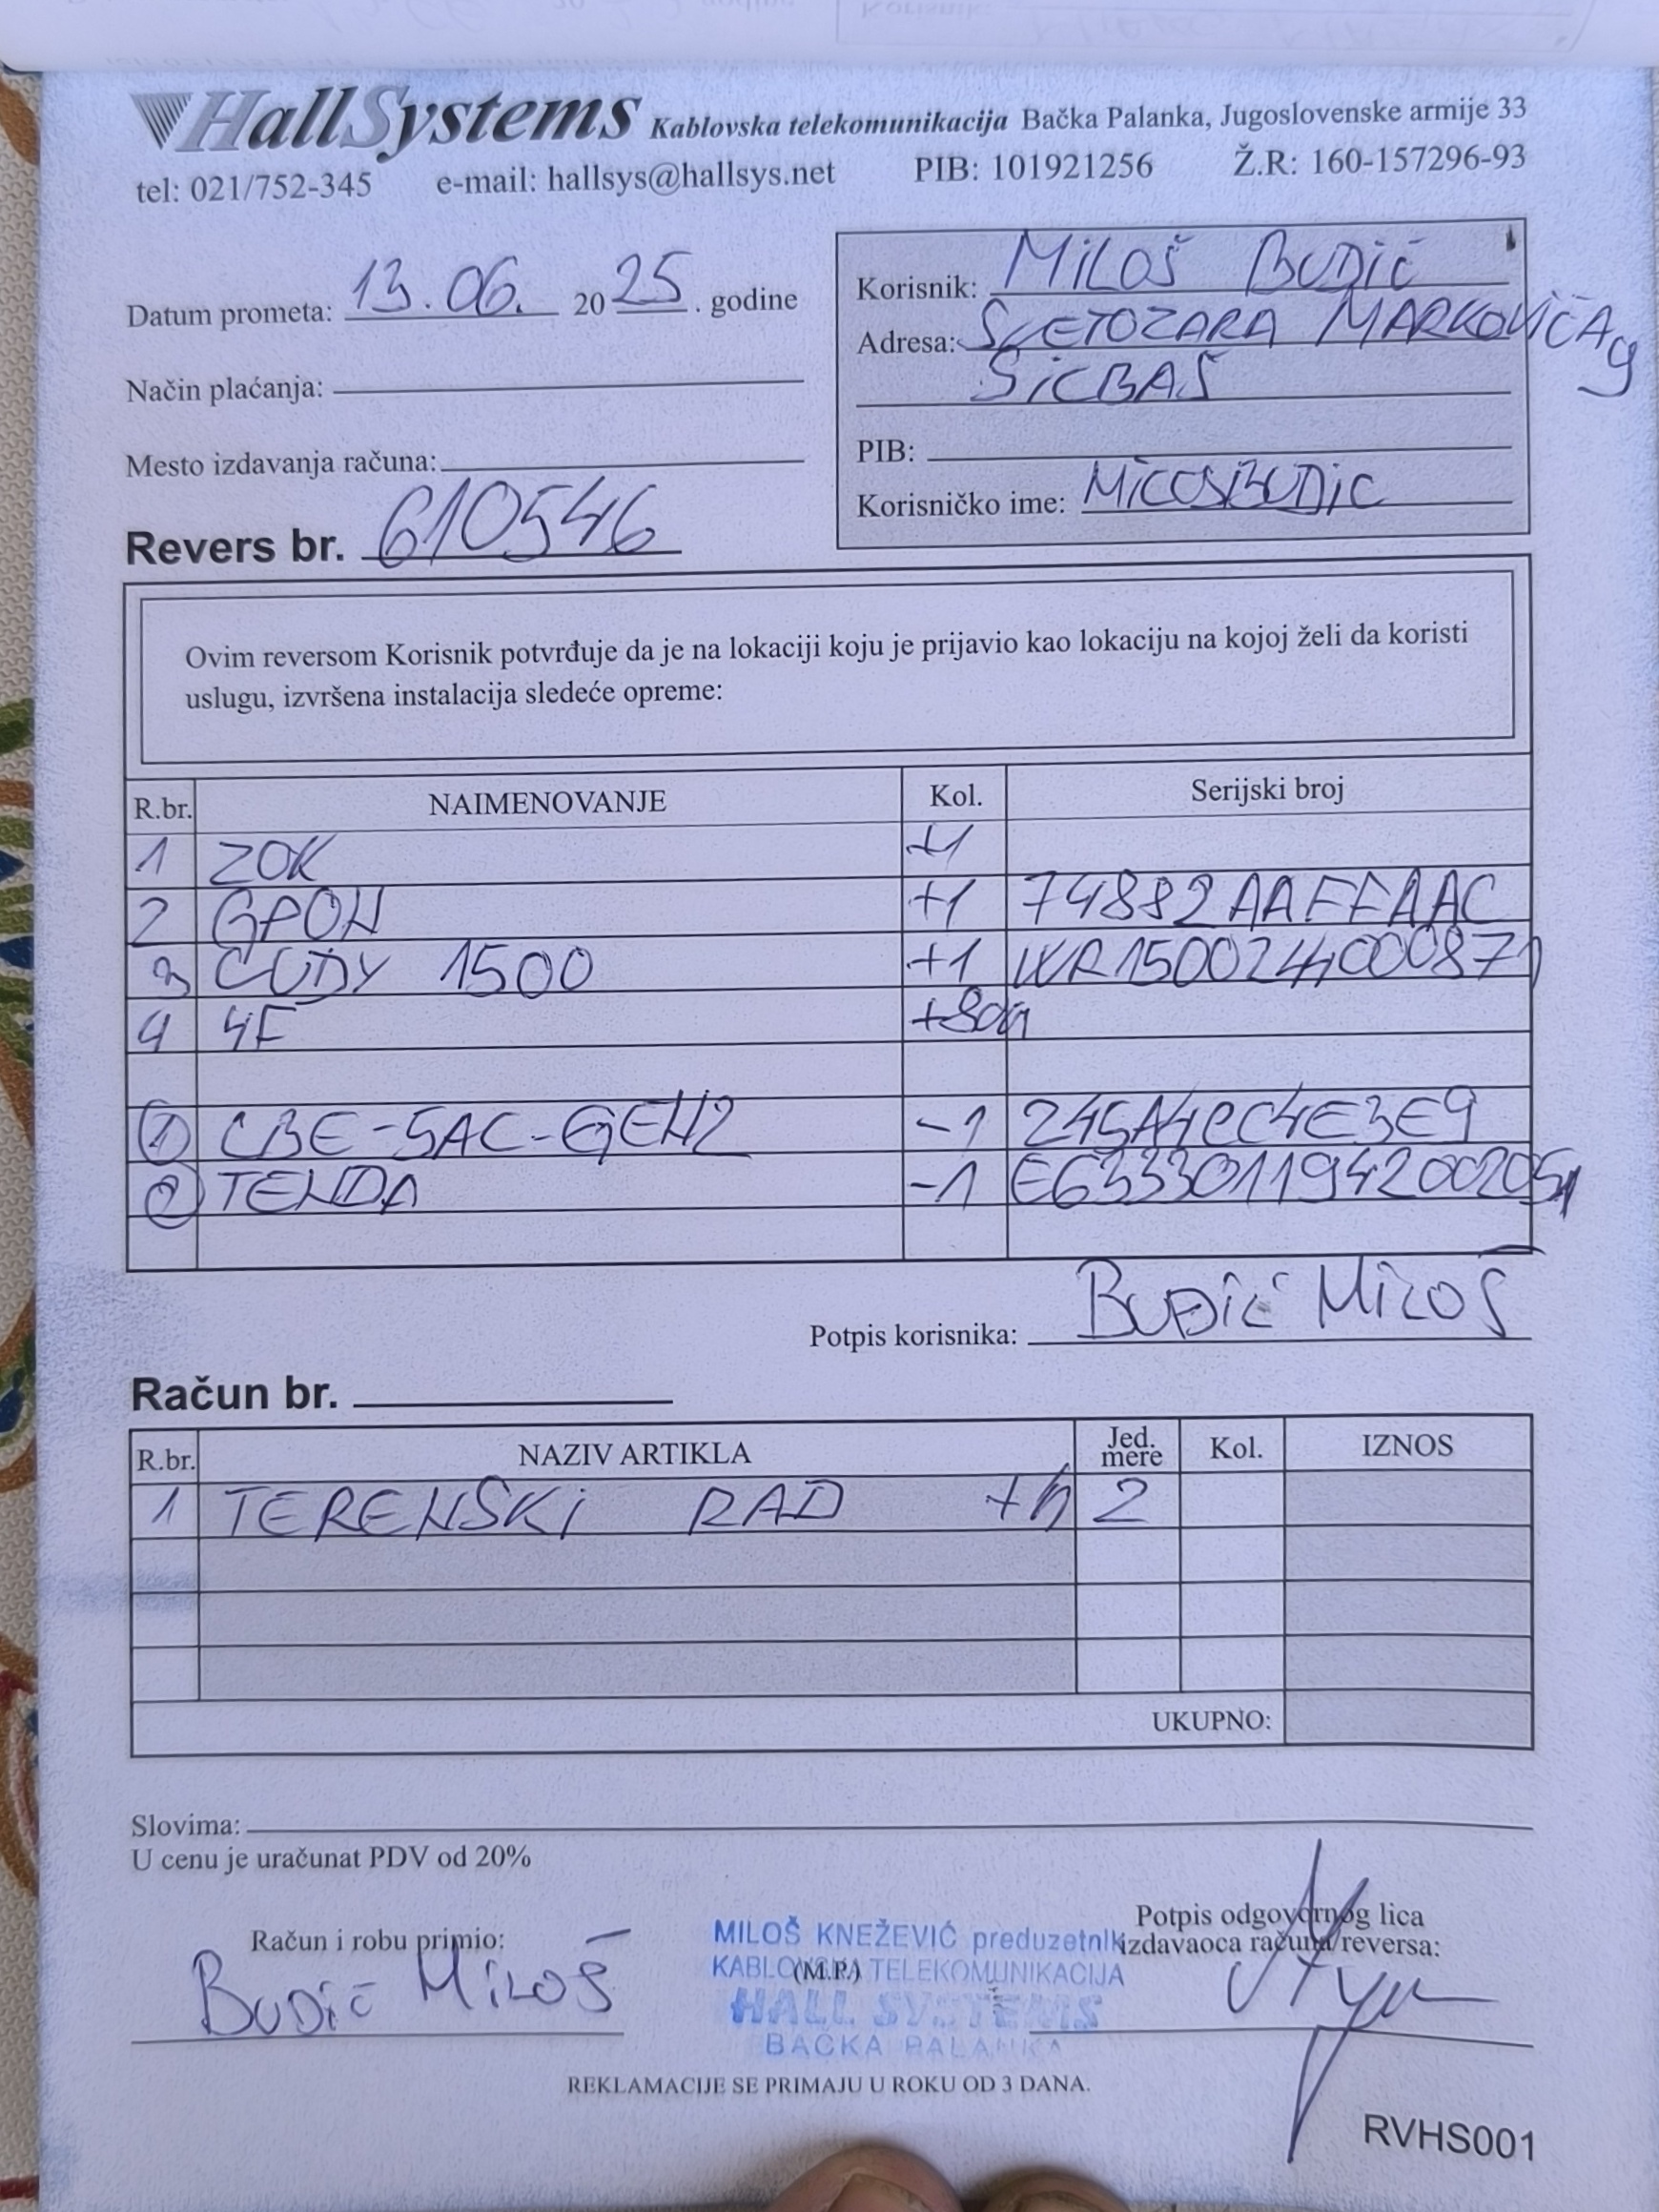 HallSystems Kablovska telekomunikacija Bačka Palanka, Jugoslovenske armije 33
tel: 021/752-345 e-mail: hallsys@hallsys.net PIB: 101921256 Ž.R: 160-157296-93
Datum prometa: 13.06. 2025. godine
Način plaćanja:
Mesto izdavanja računa:
Revers br. 610546
Korisnik: MILOŠ BUDIĆ
Adresa: SVETOZARA MARKOVIĆA 9
SILBAŠ
PIB:
Korisničko ime: MILOSBUDIC
Ovim reversom Korisnik potvrđuje da je na lokaciji koju je prijavio kao lokaciju na kojoj želi da koristi
uslugu, izvršena instalacija sledeće opreme:
R.br. NAIMENOVANJE Kol. Serijski broj
1 ZOK +1
2 GPON +1 74882AAFFAAC
3 CUDY 1500 +1
4 4F +80m
1 LBE-5AC-GEN2 -1 245A4CC4E3E9
2 TENDA -1
Potpis korisnika: BUDIĆ MILOŠ
Račun br.
R.br. NAZIV ARTIKLA Jed. mere Kol. IZNOS
1 TERENSKI RAD +h 2
UKUPNO:
Slovima:
U cenu je uračunat PDV od 20%
Račun i robu primio:
BUDIĆ MILOŠ
MILOŠ KNEŽEVIĆ preduzetnik
KABLOVSKA TELEKOMUNIKACIJA
(M.P.)
HALL SYSTEMS
BAČKA PALANKA
Potpis odgovornog lica
izdavaoca računa/reversa:
REKLAMACIJE SE PRIMAJU U ROKU OD 3 DANA.
RVHS001